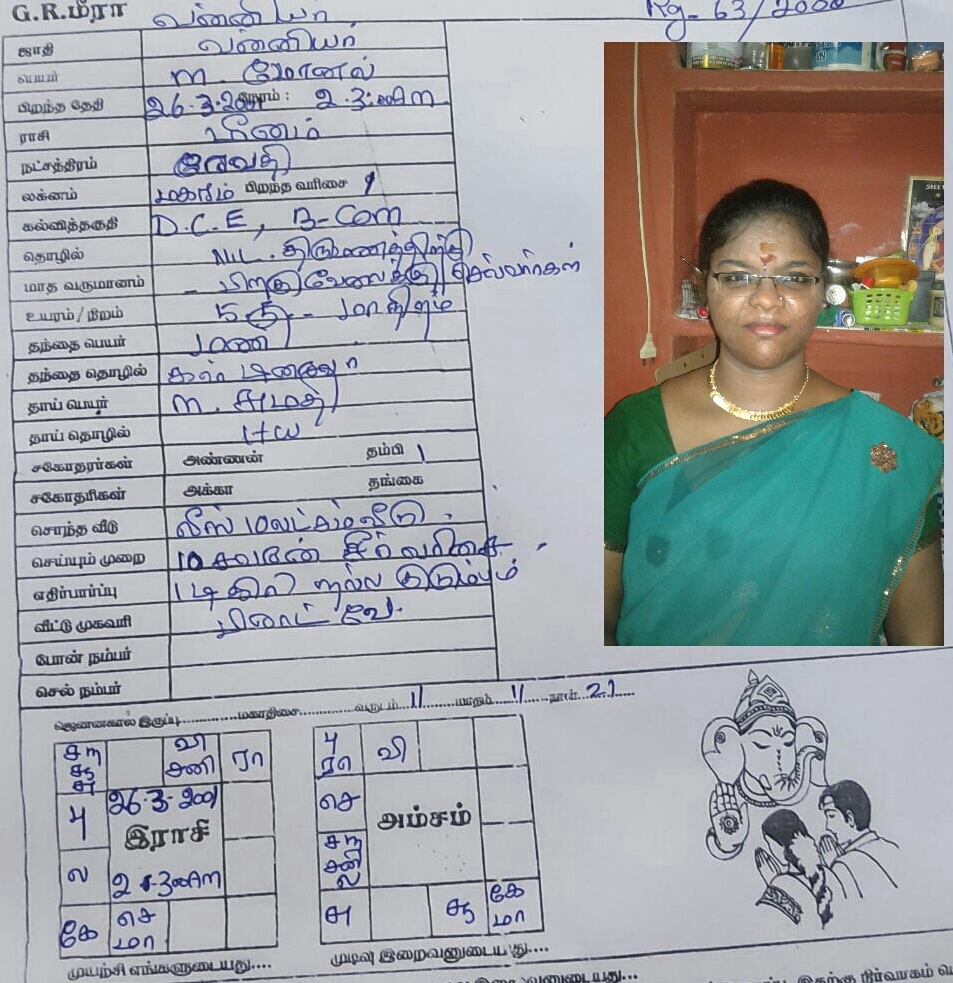 G.R.மீரா வன்னியர் Rg- 63/2000
ஜாதி வன்னியர்
பெயர் M.
பிறந்த தேதி 26.3.2001 நேரம் :
ராசி மீனம்
நட்சத்திரம் ரேவதி
லக்னம் மகரம் பிறந்த வரிசை 1
கல்வித்தகுதி D.C.E, B-Com
தொழில் NIL. திருமணத்திற்கு
மாத வருமானம் - பிறகு வேலைக்கு செல்வார்கள்
உயரம் / நிறம் 5 5 - மாநிறம்
தந்தை பெயர் மணி
தந்தை தொழில்
தாய் பெயர் M. சுமதி
தாய் தொழில் H W
சகோதரர்கள் அண்ணன் தம்பி 1
சகோதரிகள் அக்கா தங்கை
சொந்த வீடு லீஸ் 10 லட்சம் வீடு.
செய்யும் முறை 10 சவரன் சீர் வரிசை
எதிர்பார்ப்பு டிகிரி நல்ல குடும்பம்
வீட்டு முகவரி
போன் நம்பர்
செல் நம்பர்
ஜெனனகால் இருப்பு............மகாதிசை............வருடம்..11......மாதம்..11.....நாள்...21.....
சூ சு வி சனி ரா
பு 26-3-2001
இராசி
ல
கே செ மா
பு ரா வி
செ
அம்சம்
சனி ல
சு கே மா
முயற்சி எங்களுடையது.... முடிவு இறைவனுடையது....
இறைவனுடையது... இதற்கு நிர்வாகம்